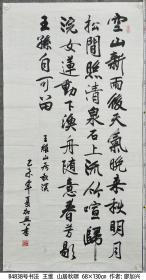 空山新雨後天氣晚来秋明月
松間照清泉石上流竹喧歸
浣女蓮動下漁舟随意春芳歇
王孫自可留
王維山居秋暝
84838号书法 王维 山居秋暝 68×130cm 作者: 廖加兴